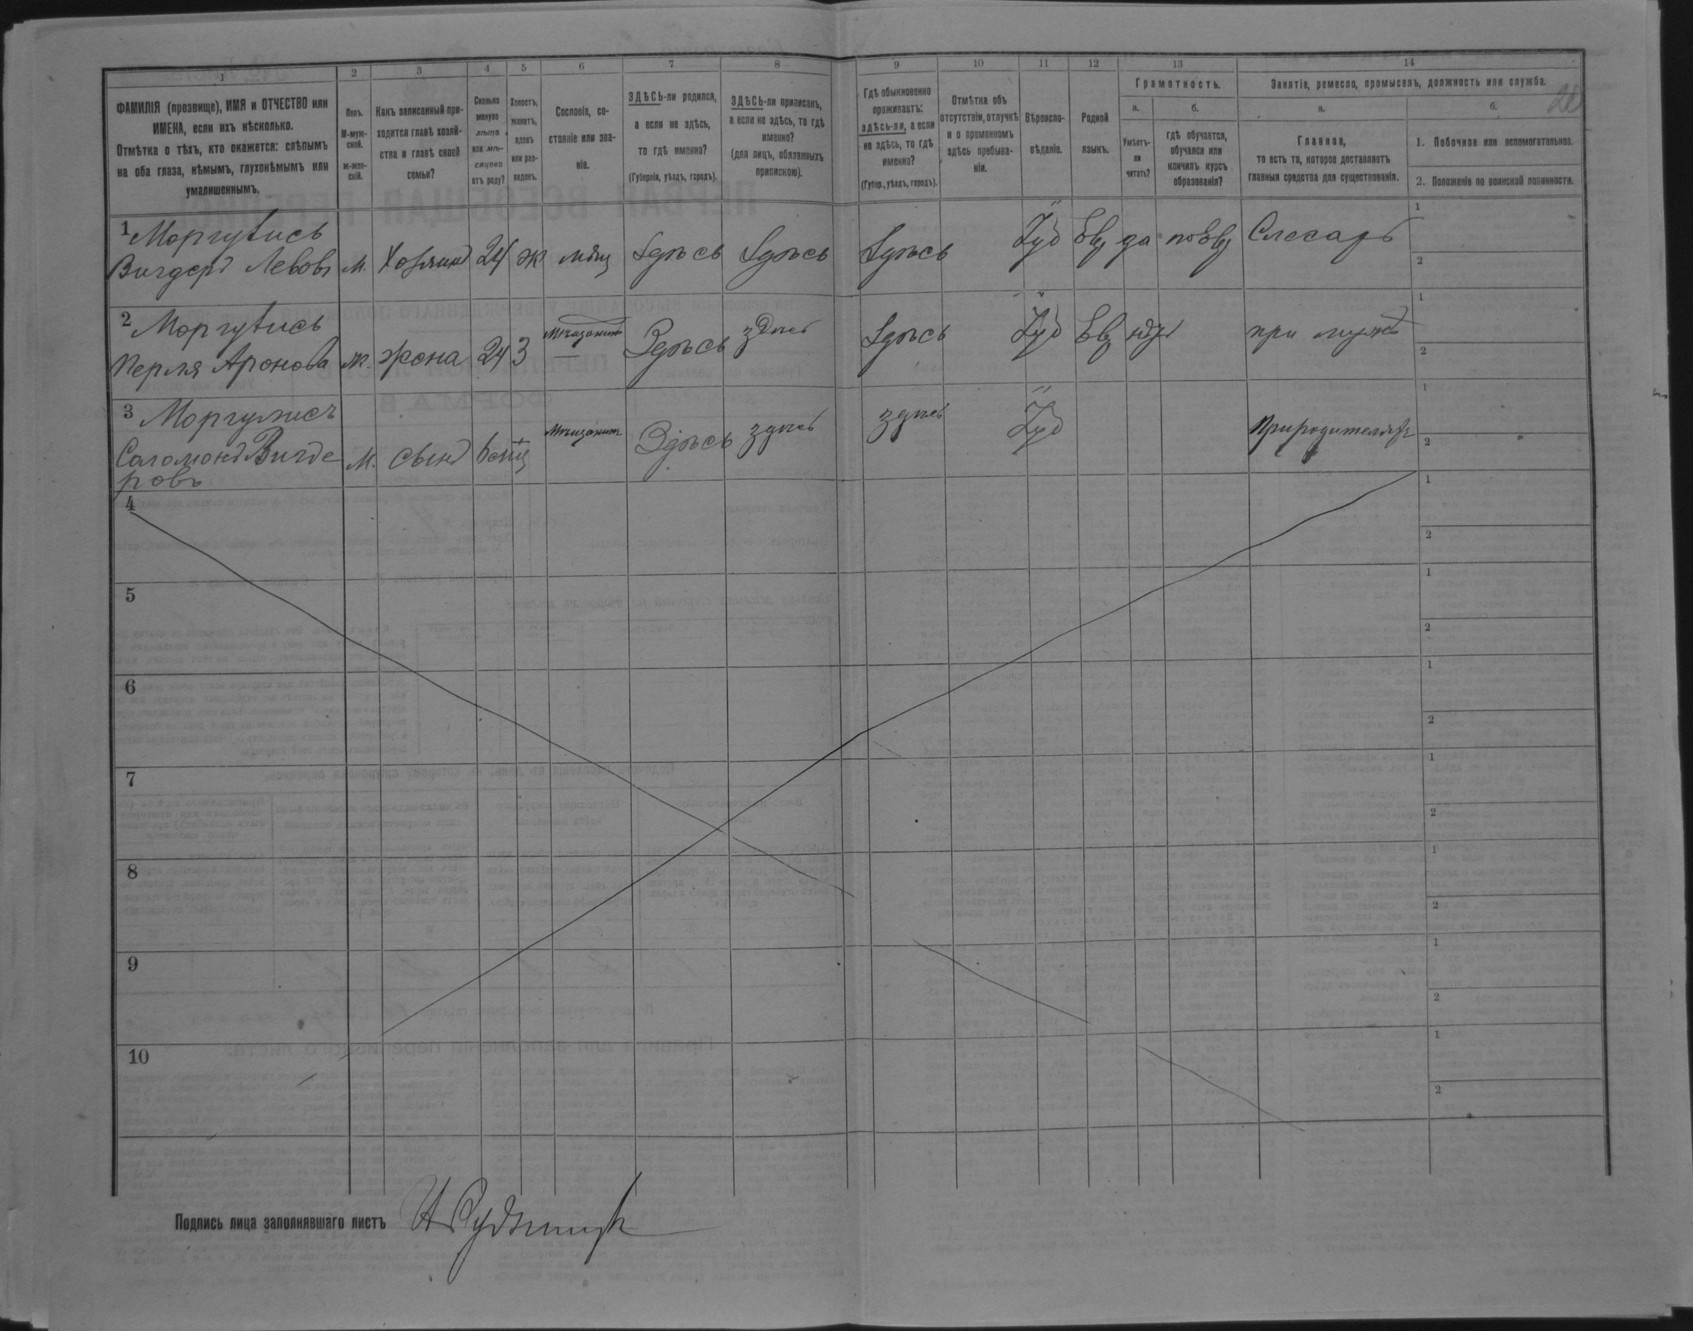 1 2 3 4 5 6 7 8 9 10 11 12 13 14
ФАМИЛІЯ (прозвище), ИМЯ и ОТЧЕСТВО или
ИМЕНА, если ихъ нѣсколько.
Отмѣтка о тѣхъ, кто окажется: слѣпымъ
на оба глаза, нѣмымъ, глухонѣмымъ или
умалишеннымъ.
Полъ.
М-муж-
ской.
ж-жен-
скій.
Какъ записанный при-
ходится главѣ хозяй-
ства и главѣ своей
семьи?
Сколько
минуло
лѣтъ
или мѣ-
сяцевъ
отъ роду?
Холостъ,
женатъ,
вдовъ
или раз-
веденъ.
Сословіе, со-
стояніе или зва-
ніе.
ЗДѢСЬ-ли родился,
а если не здѣсь,
то гдѣ именно?
(Губернія, уѣздъ, городъ).
ЗДѢСЬ-ли приписанъ,
а если не здѣсь, то гдѣ
именно?
(для лицъ, обязанныхъ
припискою).
Гдѣ обыкновенно
проживаетъ:
здѣсь-ли, а если
не здѣсь, то гдѣ
именно?
(Губер., уѣздъ, городъ).
Отмѣтка объ
отсутствіи, отлучкѣ
и о временномъ
здѣсь пребыва-
ніи.
Вѣроиспо-
вѣданіе.
Родной
языкъ.
Грамотность.
а.
Умѣетъ-
ли
читать?
б.
гдѣ обучается,
обучался или
кончилъ курсъ
образованія?
Занятіе, ремесло, промыселъ, должность или служба.
а.
Главное,
то есть то, которое доставляетъ
главныя средства для существованія.
б.
1. Побочное или вспомогательное.
2. Положеніе по воинской повинности.
1 Моргулисъ
Вигдеръ Левовъ м. Хозяинъ 24 ж мѣщ Здѣсь Здѣсь Здѣсь Іуд Евр да по Евр Слесарь 1 2
2 Моргулисъ
Перля Аронова ж. жена 24 З Здѣсь здѣсь Здѣсь Іуд Евр при мужѣ 1 2
3 Моргулисъ
Саломонъ Вигде
ровъ м. сынъ Здѣсь здѣсь здѣсь Іуд При родителяхъ 1 2
4 1 2
5 1 2
6 1 2
7 1 2
8 1 2
9 1 2
10 1 2
Подпись лица заполнявшаго листъ